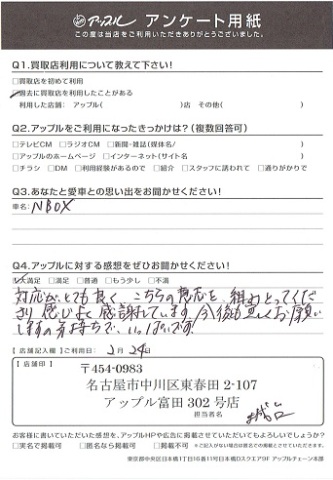 アップル アンケート用紙
この度は当店をご利用いただきありがとうございました。
Q1.買取店利用について教えて下さい!
□買取店を初めて利用
□過去に買取店を利用したことがある
利用した店舗: アップル( )店 その他( )
Q2.アップルをご利用になったきっかけは?(複数回答可)
□テレビCM □ラジオCM □新聞・雑誌(媒体名/ )
□アップルのホームページ □インターネット(サイト名 )
□チラシ □DM □利用経験があるので □紹介 □スタッフに誘われて □通りがかりで
Q3.あなたと愛車との思い出をお聞かせください!
車名: NBOX
Q4.アップルに対する感想をぜひお聞かせください!
□大満足 □満足 □普通 □もう少し □不満
対応がとても良く こちらの意志を 組みとってくだ
さり 感じよく 感謝しています 今後も宜しくお願い
しますの気持ちで、いっぱいです!
【店舗記入欄】ご利用日: 2月24日
【店舗印】
〒454-0983
名古屋市中川区東春田 2-107
アップル富田 302 号店
担当者名
お客様に書いていただいた感想を、アップルHPや広告に掲載させていただいてもよろしいでしょうか?
□実名で掲載可 □匿名なら掲載可 □掲載不可